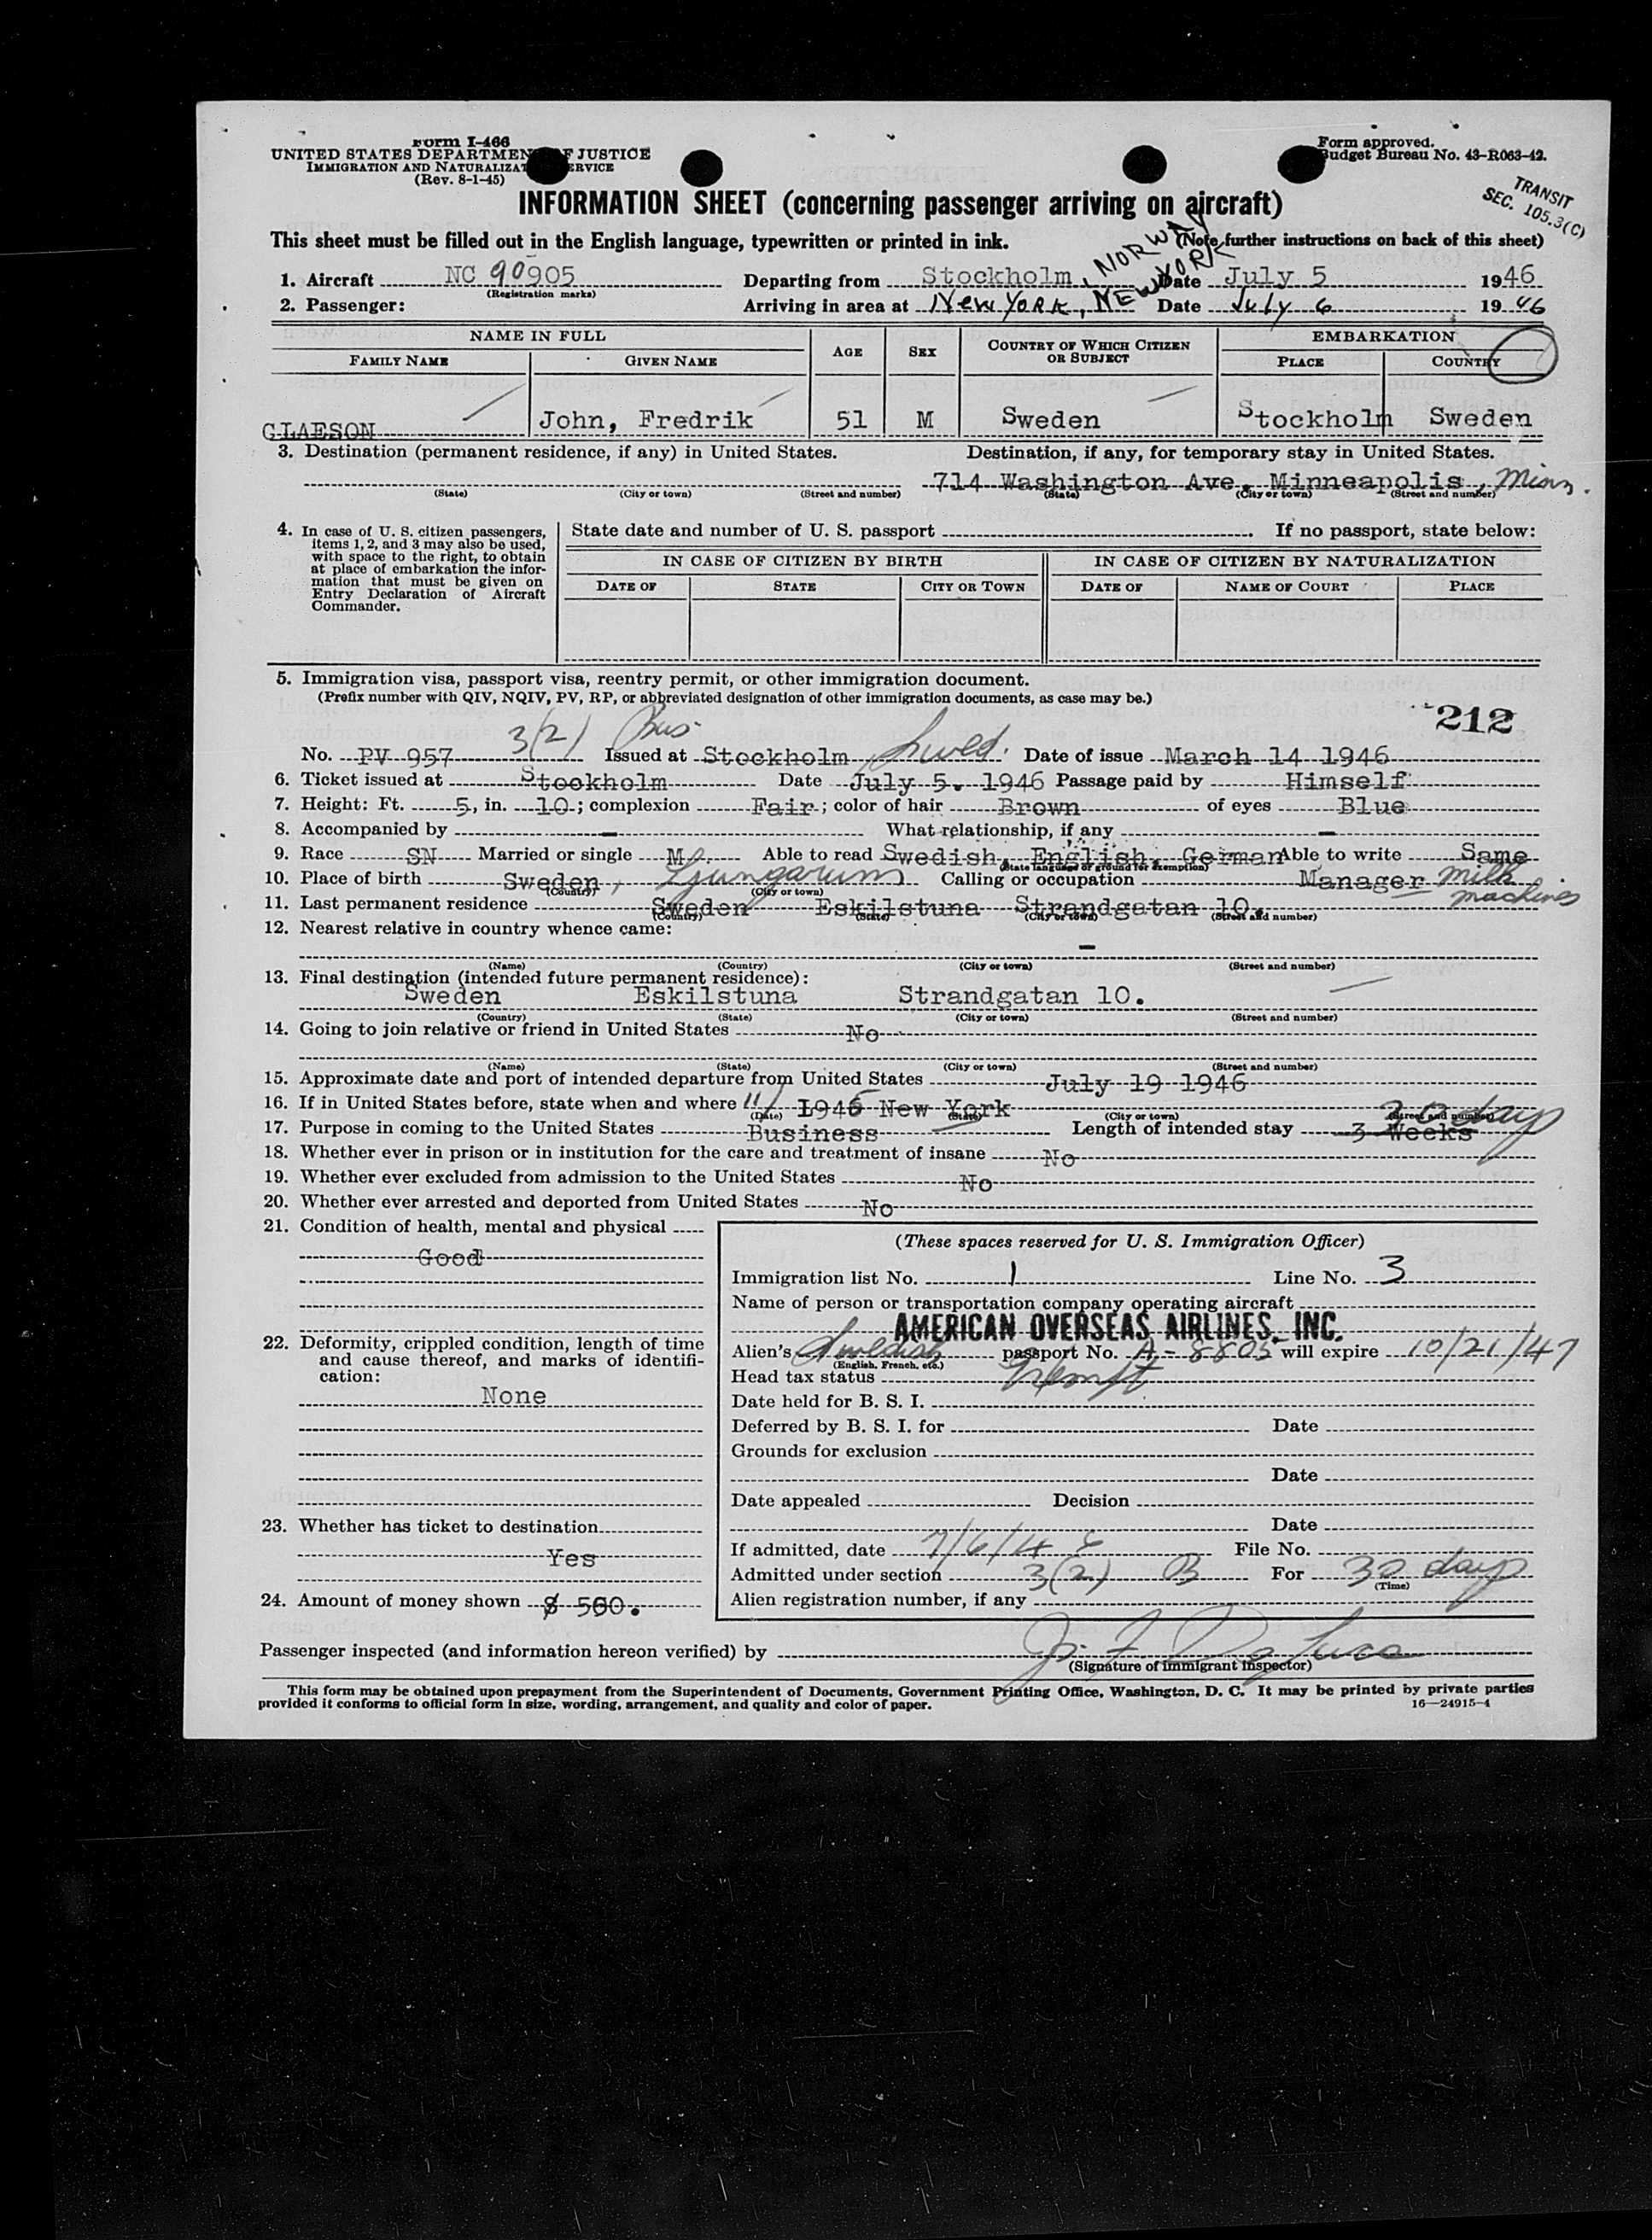 Form I-466
UNITED STATES DEPARTMENT OF JUSTICE
IMMIGRATION AND NATURALIZATION SERVICE
(Rev. 8-1-45)
Form approved.
Budget Bureau No. 43-R063-42.
TRANSIT
SEC. 105.3(C)
INFORMATION SHEET (concerning passenger arriving on aircraft)
This sheet must be filled out in the English language, typewritten or printed in ink. (Note further instructions on back of this sheet)
1. Aircraft NC 90905 Departing from Stockholm, NORWAY Date July 5 1946
(Registration marks)
2. Passenger: Arriving in area at New YORK, NEW YORK Date July 6 1946
NAME IN FULL AGE SEX COUNTRY OF WHICH CITIZEN OR SUBJECT EMBARKATION
FAMILY NAME GIVEN NAME PLACE COUNTRY
CLAESON John, Fredrik 51 M Sweden Stockholm Sweden
3. Destination (permanent residence, if any) in United States. Destination, if any, for temporary stay in United States.
714 Washington Ave, Minneapolis, Minn.
(State) (City or town) (Street and number) (State) (City or town) (Street and number)
4. In case of U. S. citizen passengers, items 1, 2, and 3 may also be used, with space to the right, to obtain at place of embarkation the information that must be given on Entry Declaration of Aircraft Commander.
State date and number of U. S. passport . If no passport, state below:
IN CASE OF CITIZEN BY BIRTH IN CASE OF CITIZEN BY NATURALIZATION
DATE OF STATE CITY OR TOWN DATE OF NAME OF COURT PLACE
5. Immigration visa, passport visa, reentry permit, or other immigration document.
(Prefix number with QIV, NQIV, PV, RP, or abbreviated designation of other immigration documents, as case may be.)
212
No. PV 957 3(2) Bus Issued at Stockholm, Swed. Date of issue March 14 1946
6. Ticket issued at Stockholm Date July 5. 1946 Passage paid by Himself
7. Height: Ft. 5, in. 10; complexion Fair; color of hair Brown of eyes Blue
8. Accompanied by - What relationship, if any -
9. Race SN Married or single M Able to read Swedish, English, German Able to write Same
(State language or ground for exemption)
10. Place of birth Sweden, Ljungarum Calling or occupation Manager milk machines
(Country) (City or town)
11. Last permanent residence Sweden Eskilstuna Strandgatan 10.
(Country) (State) (City or town) (Street and number)
12. Nearest relative in country whence came:
-
(Name) (Country) (City or town) (Street and number)
13. Final destination (intended future permanent residence):
Sweden Eskilstuna Strandgatan 10.
(Country) (State) (City or town) (Street and number)
14. Going to join relative or friend in United States No
(Name) (State) (City or town) (Street and number)
15. Approximate date and port of intended departure from United States July 19 1946
16. If in United States before, state when and where 11/ 1945 New York
(Date) (State) (City or town) (Street and number)
17. Purpose in coming to the United States Business Length of intended stay 3 Weeks 30 days
18. Whether ever in prison or in institution for the care and treatment of insane No
19. Whether ever excluded from admission to the United States No
20. Whether ever arrested and deported from United States No
21. Condition of health, mental and physical
Good
22. Deformity, crippled condition, length of time and cause thereof, and marks of identification:
None
23. Whether has ticket to destination
Yes
24. Amount of money shown $ 500.
(These spaces reserved for U. S. Immigration Officer)
Immigration list No. 1 Line No. 3
Name of person or transportation company operating aircraft
AMERICAN OVERSEAS AIRLINES, INC.
Alien's Swedish passport No. A-8805 will expire 10/21/47
(English, French, etc.)
Head tax status Exempt
Date held for B. S. I.
Deferred by B. S. I. for Date
Grounds for exclusion
Date
Date appealed Decision
Date
If admitted, date 7/6/46 File No.
Admitted under section 3(2) B For 30 days
(Time)
Alien registration number, if any
Passenger inspected (and information hereon verified) by
(Signature of Immigrant Inspector)
This form may be obtained upon prepayment from the Superintendent of Documents, Government Printing Office, Washington, D. C. It may be printed by private parties
provided it conforms to official form in size, wording, arrangement, and quality and color of paper.
16—24915-4